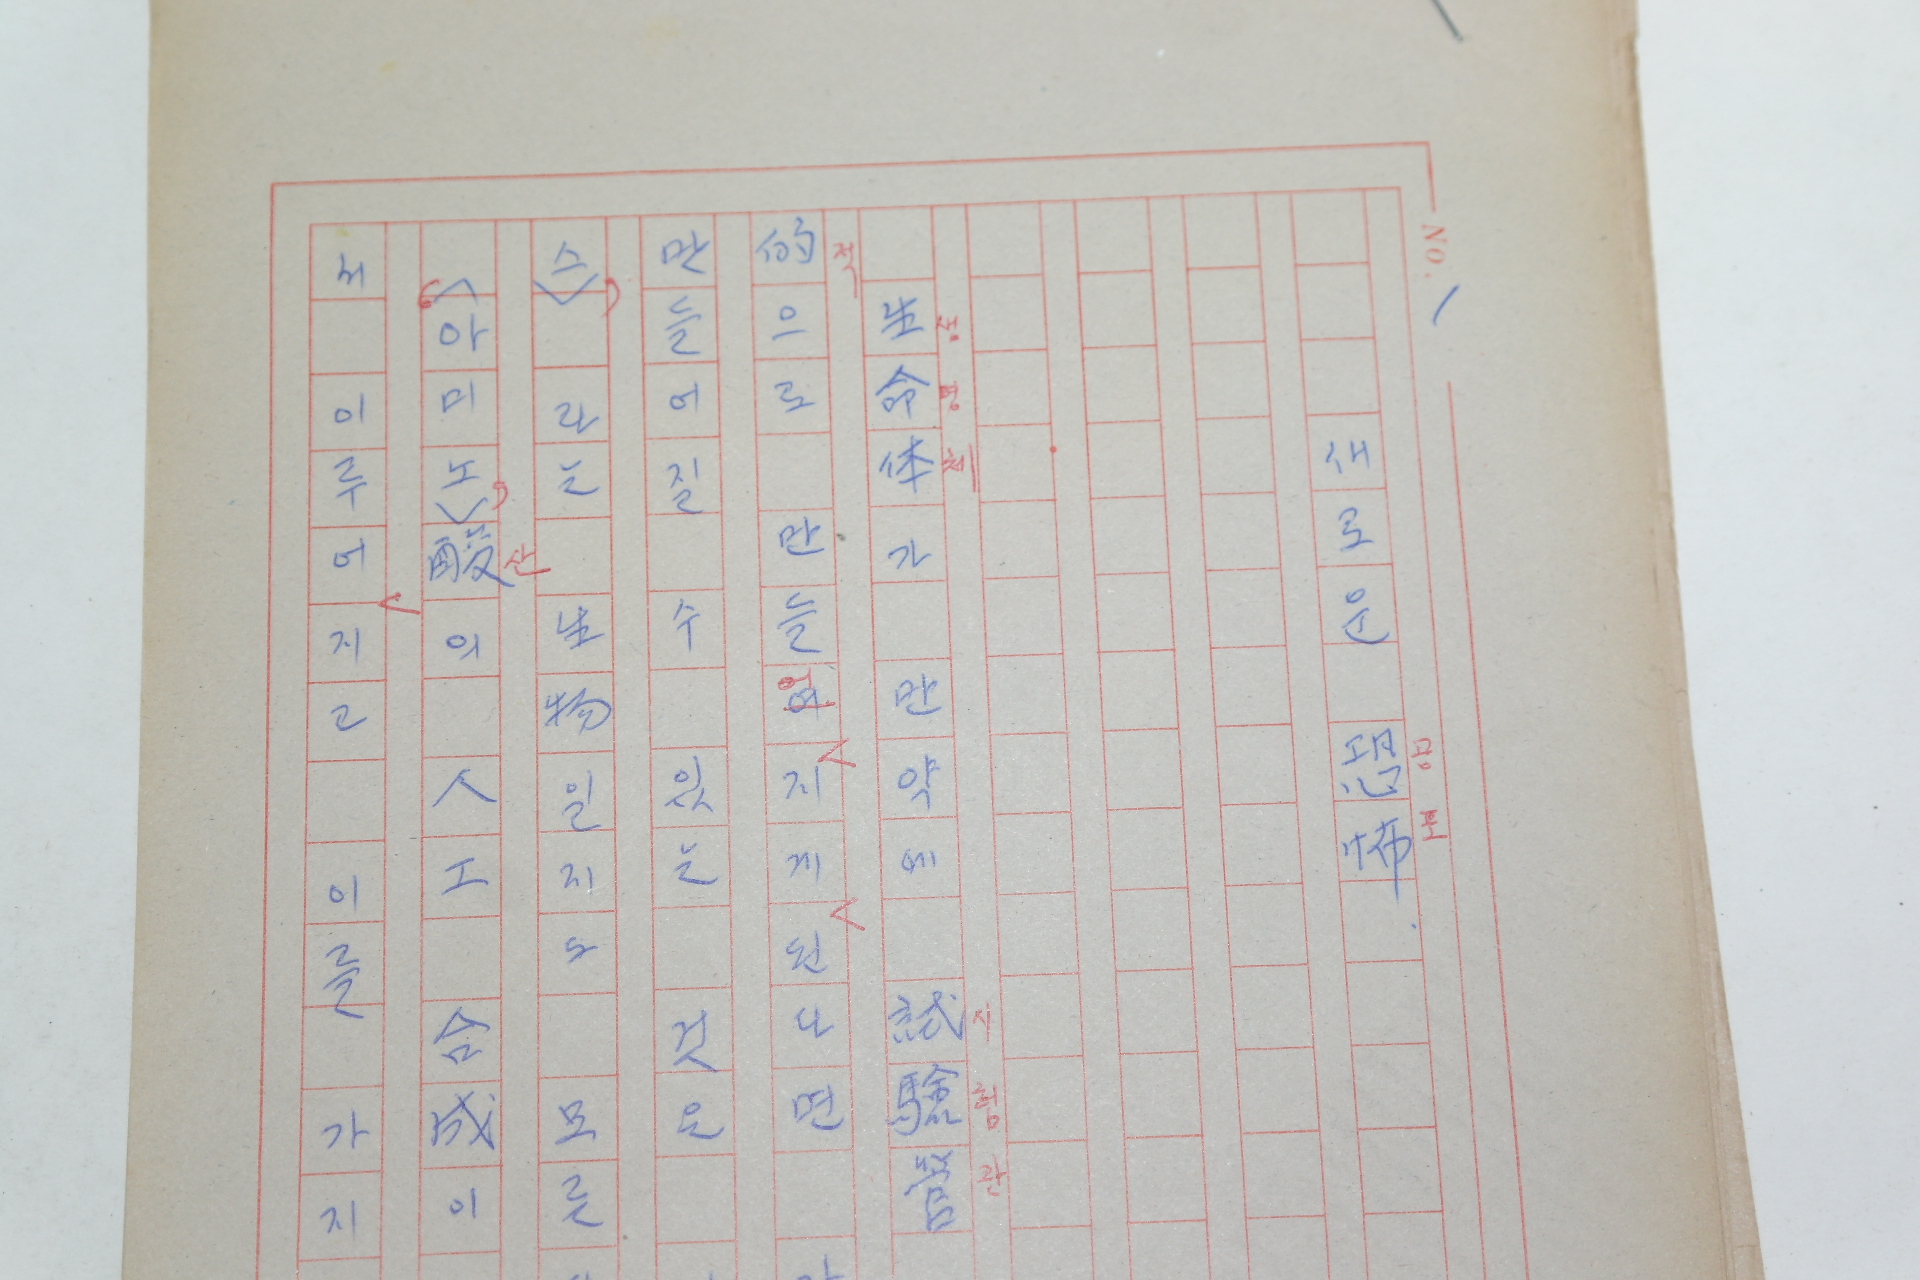 No. 1
새로운 恐怖
공포
生命体가 만약에 試験管
생명체 시험관
的으로 만들어지게 된다면
적
만들어질 수 있는 것은
스〉라는 生物일지도 모른
〈아미노〉酸의 人工 合成이
산
이루어지고 이를 가지